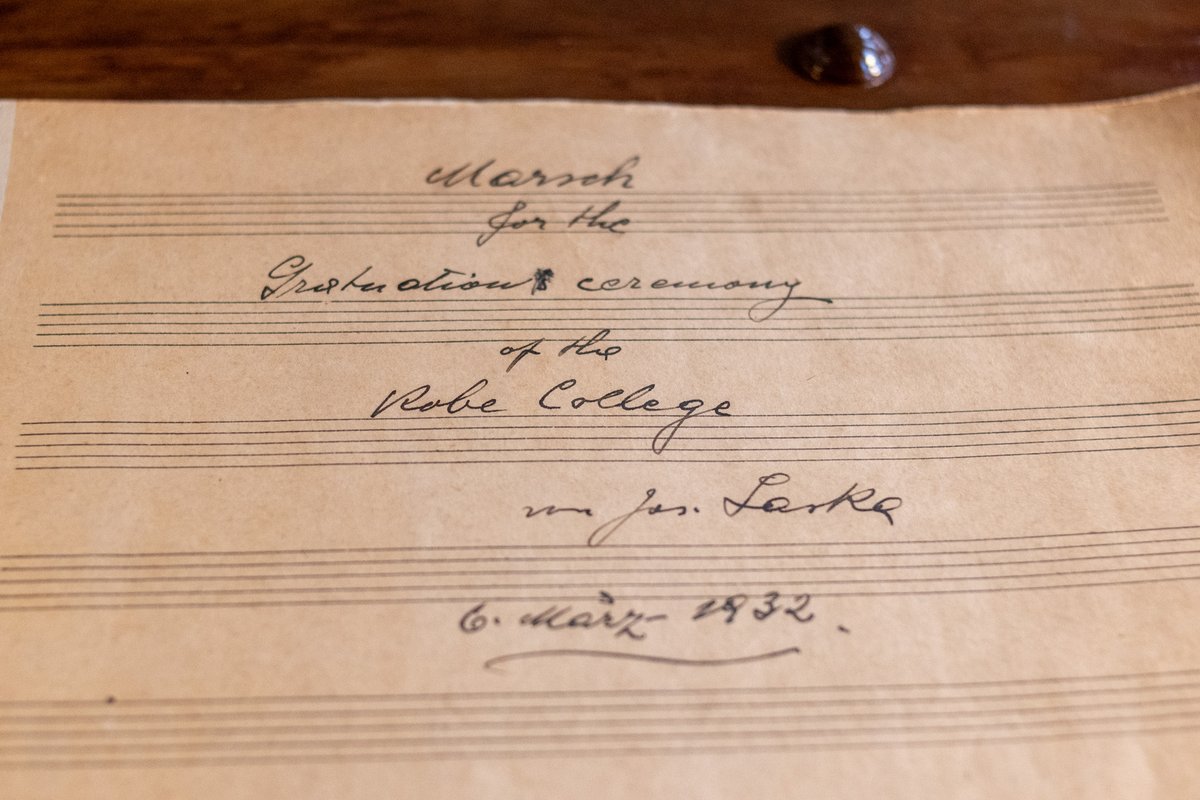 Marsch
for the
Graduation ceremony
of the
Kobe College
von Jos. Laska
6. März 1932.